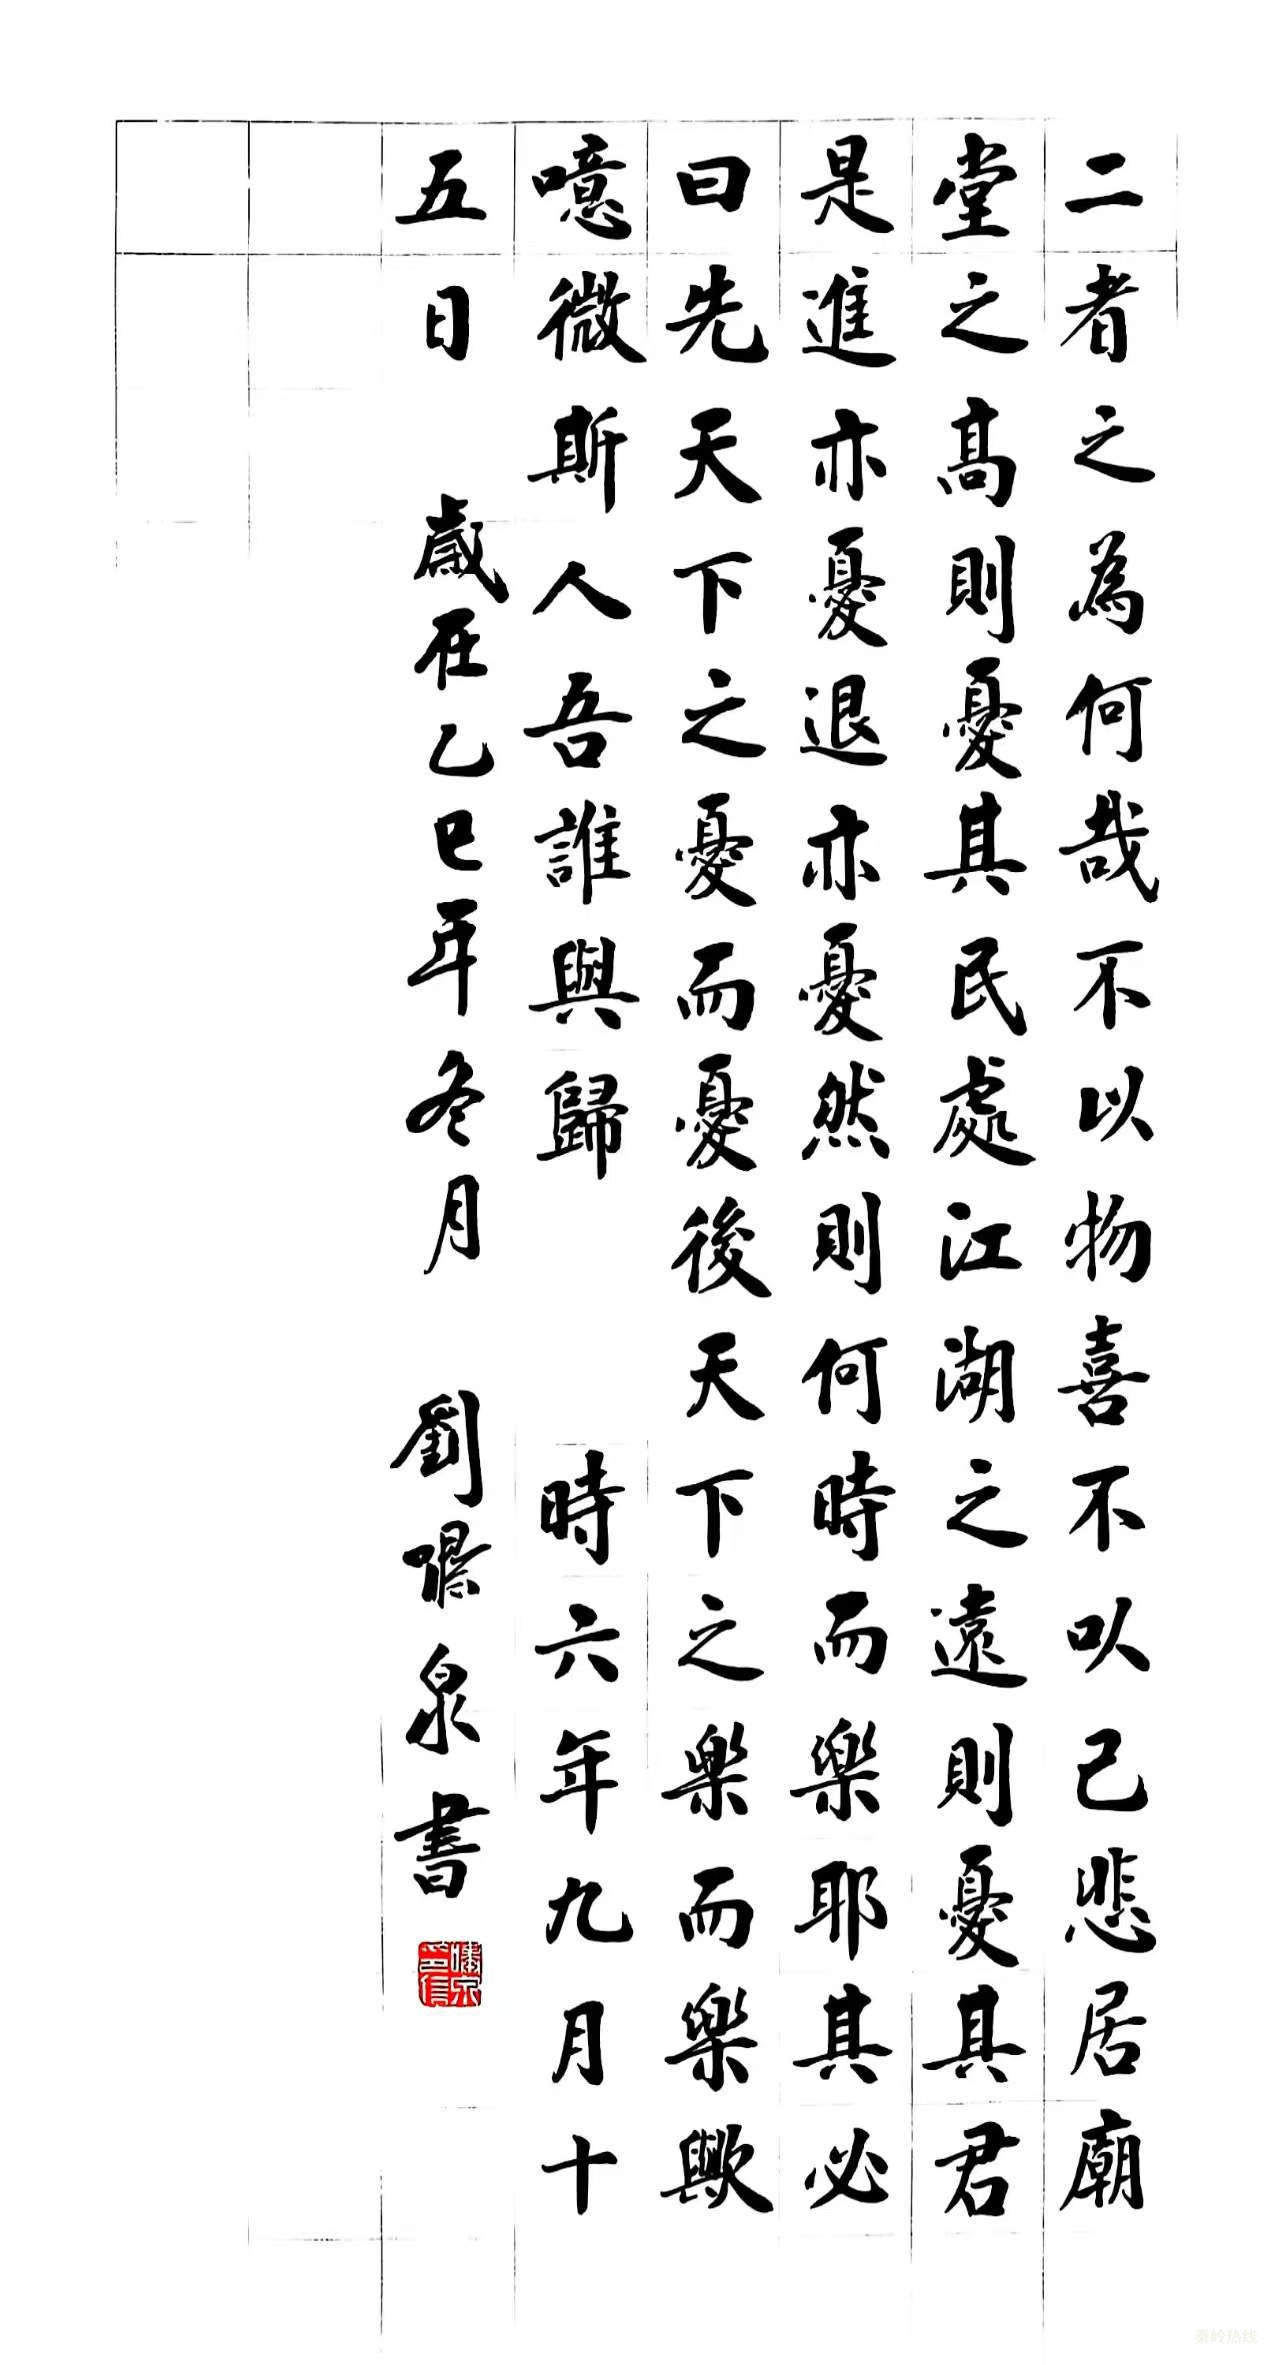 二者之為何哉不以物喜不以己悲居廟
堂之高則憂其民處江湖之遠則憂其君
是進亦憂退亦憂然則何時而樂耶其必
曰先天下之憂而憂後天下之樂而樂歟
噫微斯人吾誰與歸 時六年九月十
五日 歲在乙巳年冬月 劉 泉書
秦岭热线